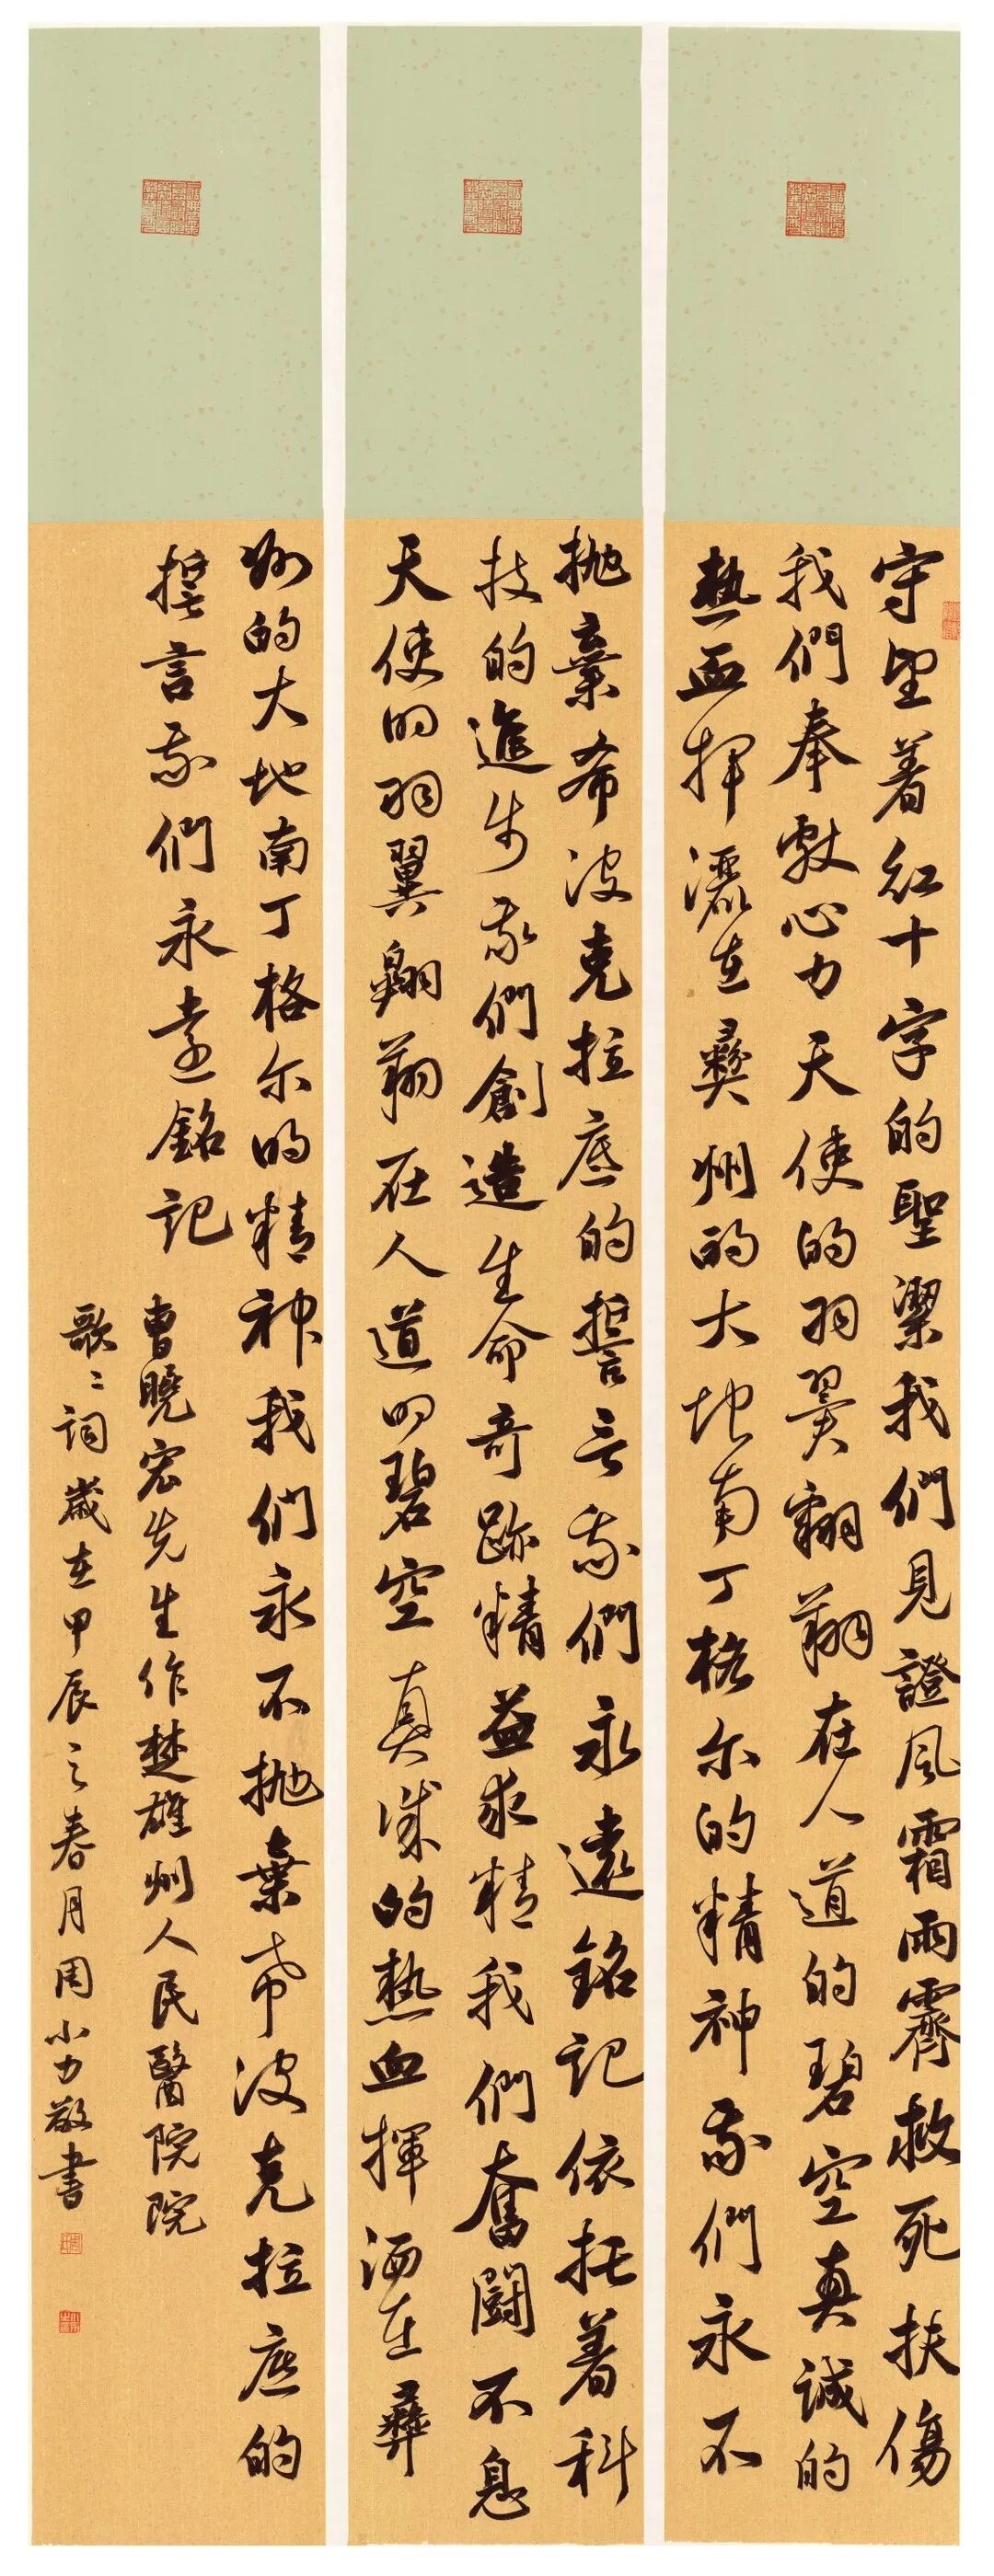 守望着紅十字的聖潔我們見證風霜雨霽救死扶傷
我們奉獻心力天使的羽翼翱翔在人道的碧空真誠的
熱血揮灑在彝州的大地南丁格尔的精神我們永不
拋棄希波克拉底的誓言我們永遠銘記依托着科
技的進步我們創造生命奇跡精益求精我們奮鬪不息
天使的羽翼翱翔在人道的碧空真誠的熱血揮洒在彝
州的大地南丁格尔的精神我們永不拋棄希波克拉底的
誓言我們永遠銘記
曹曉宏先生作楚雄州人民醫院院
歌歌詞歲在甲辰之春月周小力敬書